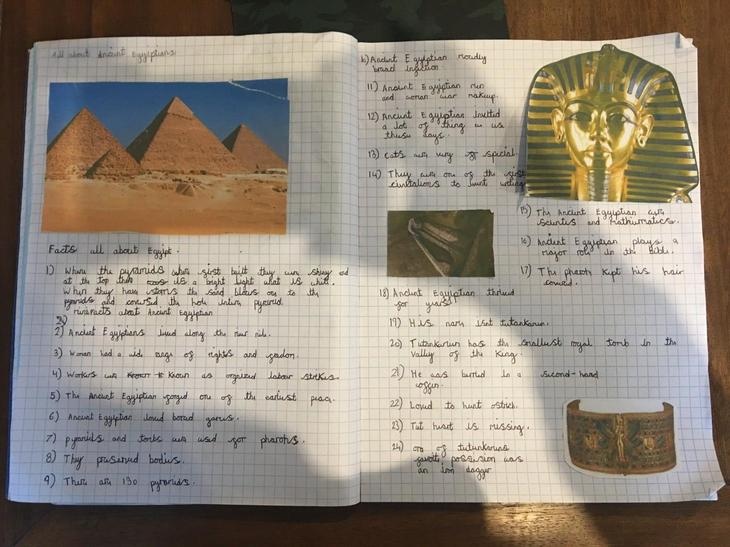 All about Ancient Egyptians
Facts all about Egypt.
1) When the pyramids where first built they wer shiny and
at the top ther is a bright light what is white.
When they have storms the sand blows on to the
pyramids and coverd the hole intire pyramid.
facts about Ancient Egyptian
2) Ancient Egyptians lived along the river nile.
3) Woman had a wide range of rights and freadom.
4) Workers wer known to known as orginized labour strikes
5) The Ancient Egyptian forged one of the earliest peace
6) Ancient Egyptian loved borad games.
7) pyramids and tombs wer used for pharohs.
8) They preserved bodies.
9) There are 130 pyramids.
10) Ancient Egyptian mostly
11) Ancient Egyptian men
and woman wear makeup.
12) Ancient Egyptian invited
a lot of thing we us
these days.
13) cats wer very special.
14) They wer one of the first
civilations to invent writing
15) The Ancient Egyptian were
scientes and mathematics.
16) Ancient Egyptian plays a
major role in the bible.
17) The pharoh kept his hair
coverd.
18) Ancient Egyptian thrived
for years.
19) His name isnt tutankarun.
20) Tutankarun has the smallest royal tomb in the
Valley of the King.
21) He was burried in a second-hand
coffin.
22) Loved to hunt ostrich.
23) Tut heart is missing.
24) one of tutankaruns
possesion was
an iron dagger